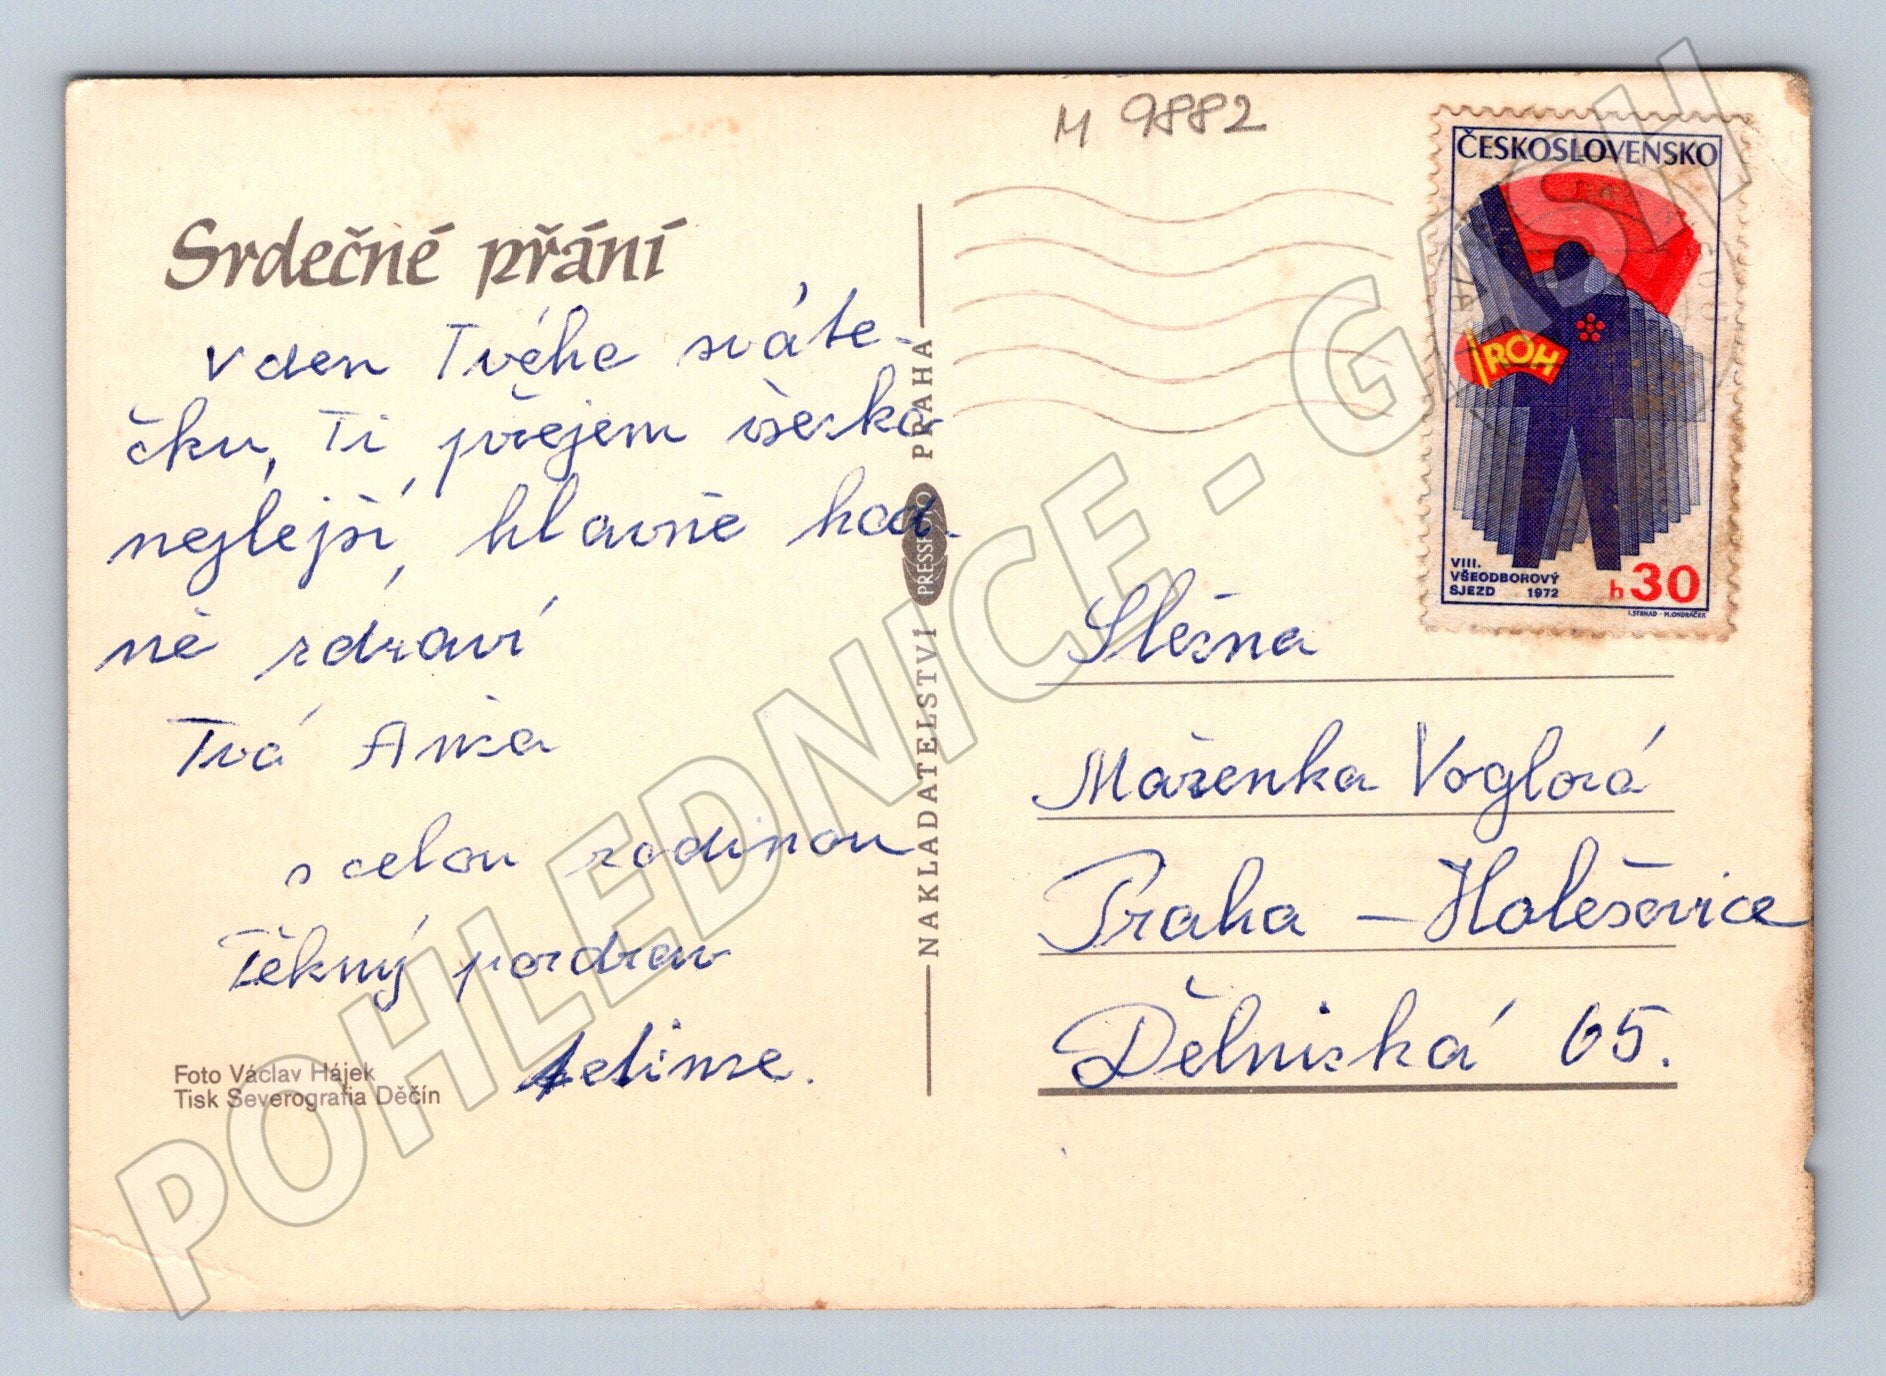 M 9882
ČESKOSLOVENSKO
ROH
VIII.
VŠEODBOROVÝ
SJEZD 1972
h 30
I. STRNAD - M. ONDRÁČEK
Srdečné přání
v den Tvého sváte-
čku, Ti přejem všecko
nejlejší, hlavně hod-
ně zdraví
Tvá
s celou rodinou
Pěkný pozdrav
Foto Václav Hájek
Tisk Severografia Děčín
NAKLADATELSTVÍ PRESSFOTO PRAHA
Slečna
Mařenka Voglová
Praha – Holešovice
Dělnická 65.
POHLEDNICE - GASH